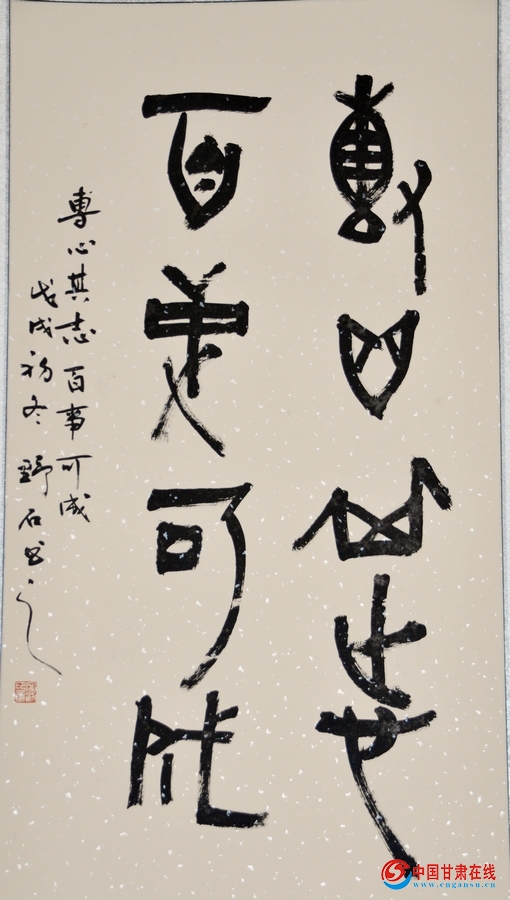 專心其志
百事可成
專心其志 百事可成
戊戌初冬 野石书之
中国甘肃在线
www.cngansu.cn